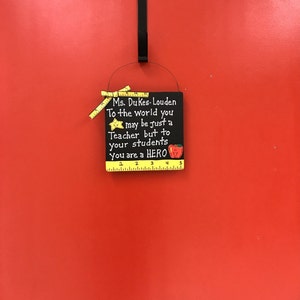 Ms. Dukes-Louden
To the world you
may be just a
Teacher but to
your students
you are a HERO
1 2 3 4 5